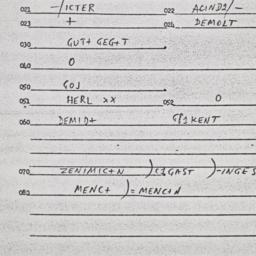 021 -/ICTER 022 ACIND2/-
023 + 024 DEMOLT
030 GUT+ GEG+T
040 O
050 GOJ
051 HERL xx 052 O
060 DEMID+ KENT
070 ZENIMIC+N )(1GAST )-INGES
080 MENC+ )=MENC+N